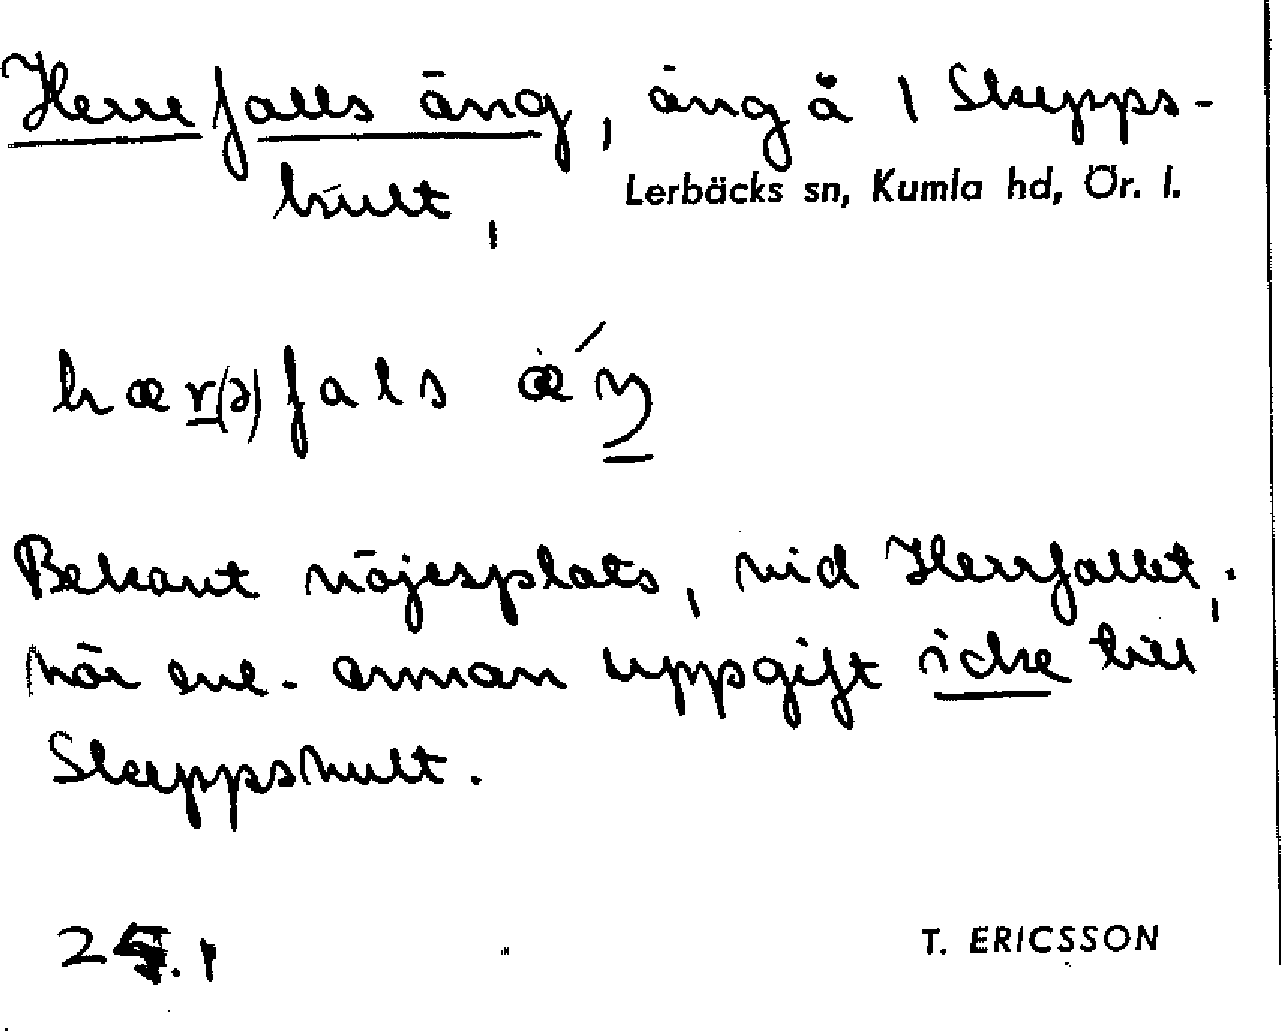 Herrefalls äng, äng å 1 Skepps-
hult,
Lerbäcks sn, Kumla hd, Ör. l.
hær(ə)fals ǽŋ
Bekant nöjesplats, vid Herrfallet,.
hör enl. annan uppgift icke till
Skeppshult.
T. ERICSSON